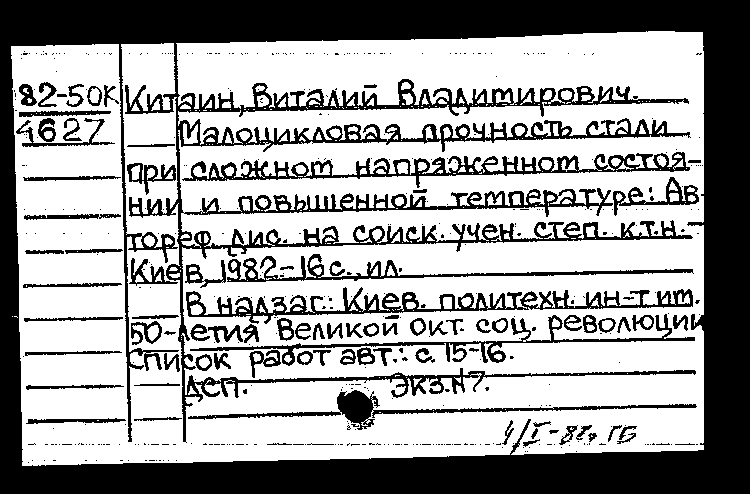 82-50К Китаин, Виталий Владимирович.
4627 Малоцикловая прочность стали
при сложном напряженном состоя-
нии и повышенной температуре: Ав-
тореф. дис. на соиск. учен. степ. к.т.н.-
Киев, 1982.-16 с., ил.
В надзаг.: Киев. политехн. ин-т им.
50-летия Великой Окт. соц. революции
Список работ авт.: с. 15-16.
ДСП. Экз.№7.
4/I-82. ГБ